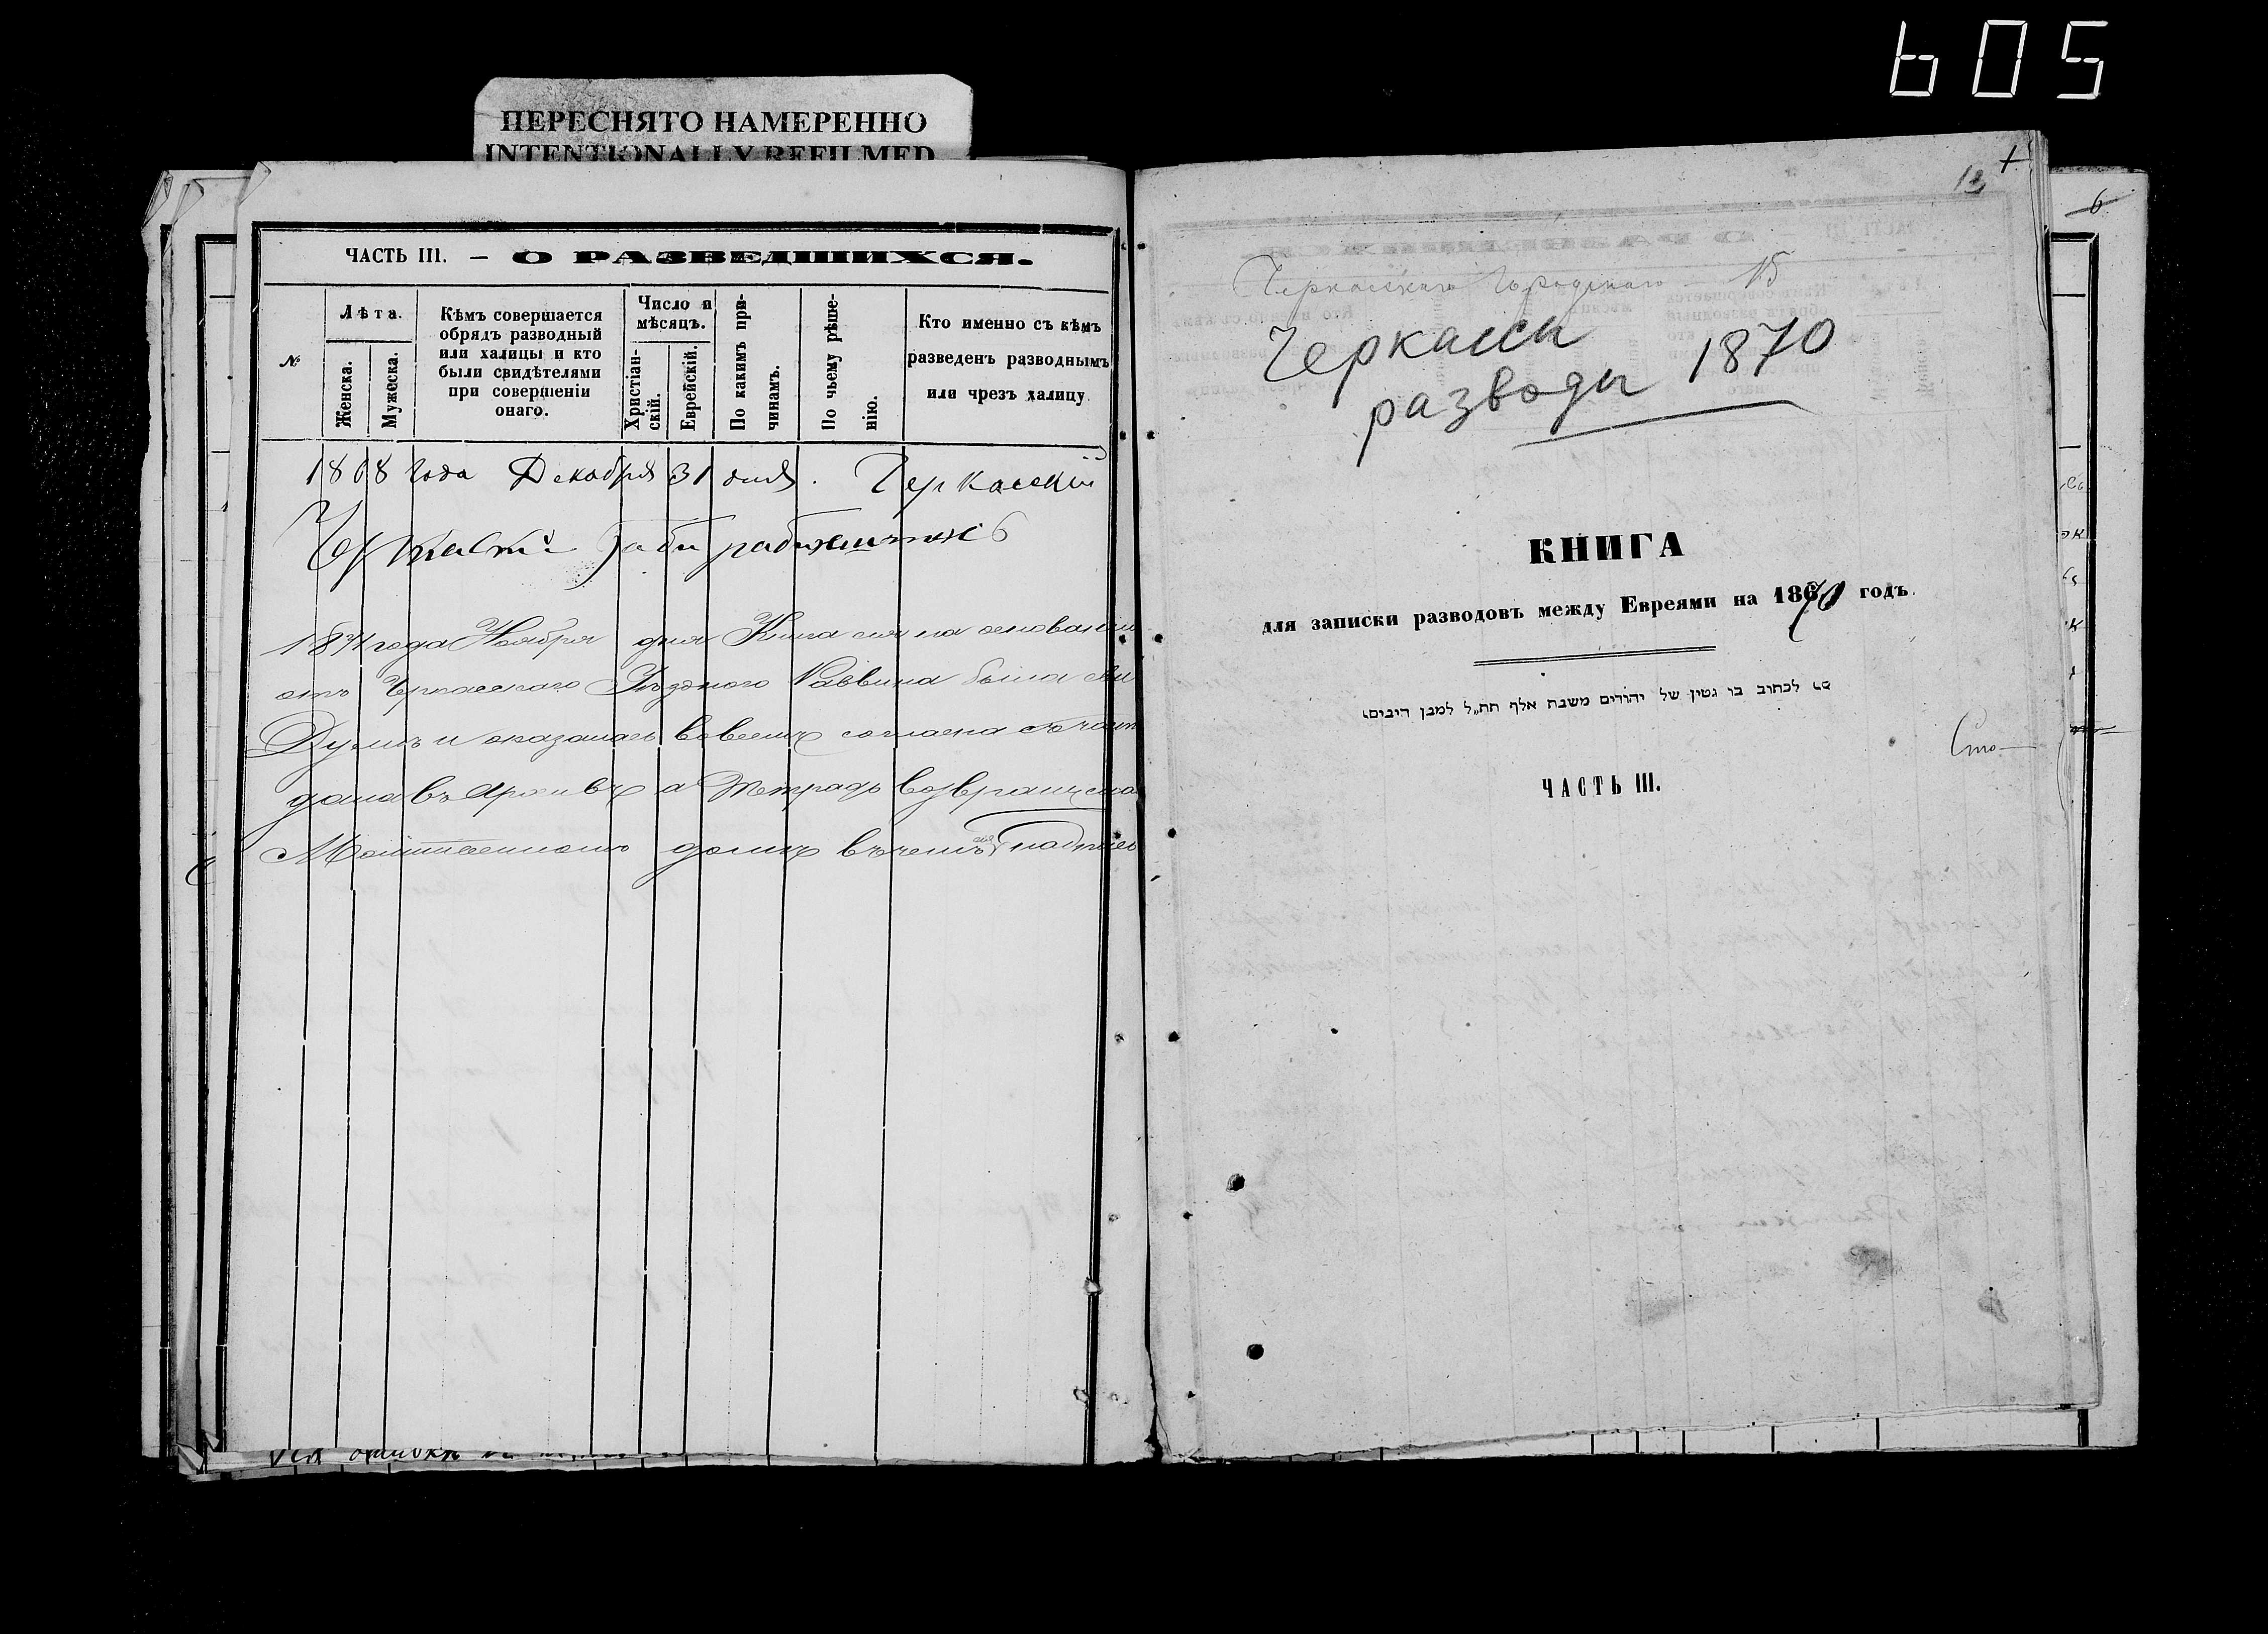 605
ПЕРЕСНЯТО НАМЕРЕННО
INTENTIONALLY REFILMED
ЧАСТЬ III. — О РАЗВЕДШИХСЯ.
№
Лѣта.
Женска.
Мужеска.
Кѣмъ совершается
обрядъ разводный
или халицы и кто
были свидѣтелями
при совершеніи
онаго.
Число и
мѣсяцъ.
Христіан-
скій.
Еврейскій.
По какимъ при-
чинамъ.
По чьему рѣше-
нію.
Кто именно съ кѣмъ
разведенъ разводнымъ
или чрезъ халицу
1868 года Декабря 31 дня. Черкасскій
года Ноября дня Книга сія на основаніи
отъ Черкасскаго Уѣзднаго Раввина была
Думѣ и оказалась вовсемъ согласна
дана въ Архивъ а тетрадь возвращена
домъ въ чемъ надпись
13
6
Черкасскаго Городскаго 15
Черкассы
разводы 1870
КНИГА
для записки разводовъ между Евреями на 1870 годъ.
לכתוב בו גטין של יהודים משבת אלף תת״ל למבן היבים
ЧАСТЬ III.